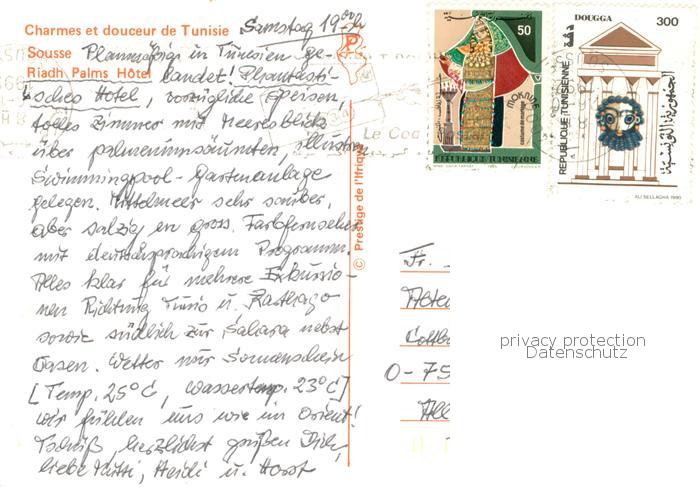 Charmes et douceur de Tunisie Samstag 19.00h
Sousse Planmäßig in Tunesien ge-
Riadh Palms Hôtel landet! Phantasti-
sches Hotel, vorzügliche Speisen,
tolles Zimmer mit Meeresblick
über palmenumsäumten, illustren
Swimmingpool-Gartenanlage
gelegen. Mittelmeer sehr sauber,
aber salzig en gros. Farbfernseher
mit deutschsprachigem Programm.
Alles klar für mehrere Exkursio-
nen Richtung Tunis u. Karthago
sowie südlich zur Sahara nebst
Oasen. Wetter nur Sonnenschein
[Temp. 25°C, Wassertemp. 23°C]
wir fühlen uns wie im Orient!
Tschüß, herzlichst grüßen Dich,
liebe Mutti, Heidi u. Horst
© Prestige de l'Ifriquia
50
MOKNINE
costume de mariage
REPUBLIQUE TUNISIENNE
DOUGGA
دقة
300
REPUBLIQUE TUNISIENNE
الجمهورية التونسية
ALI BELLAGHA 1990
Fr.
Cottb
O-75
All
privacy protection
Datenschutz